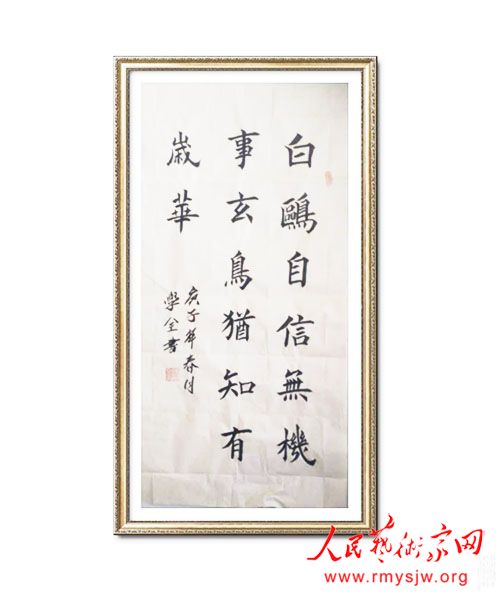 白鷗自信無機
事玄鳥猶知有
歲華
庚子年春月
學全書
人民藝術家网
www.rmysjw.org